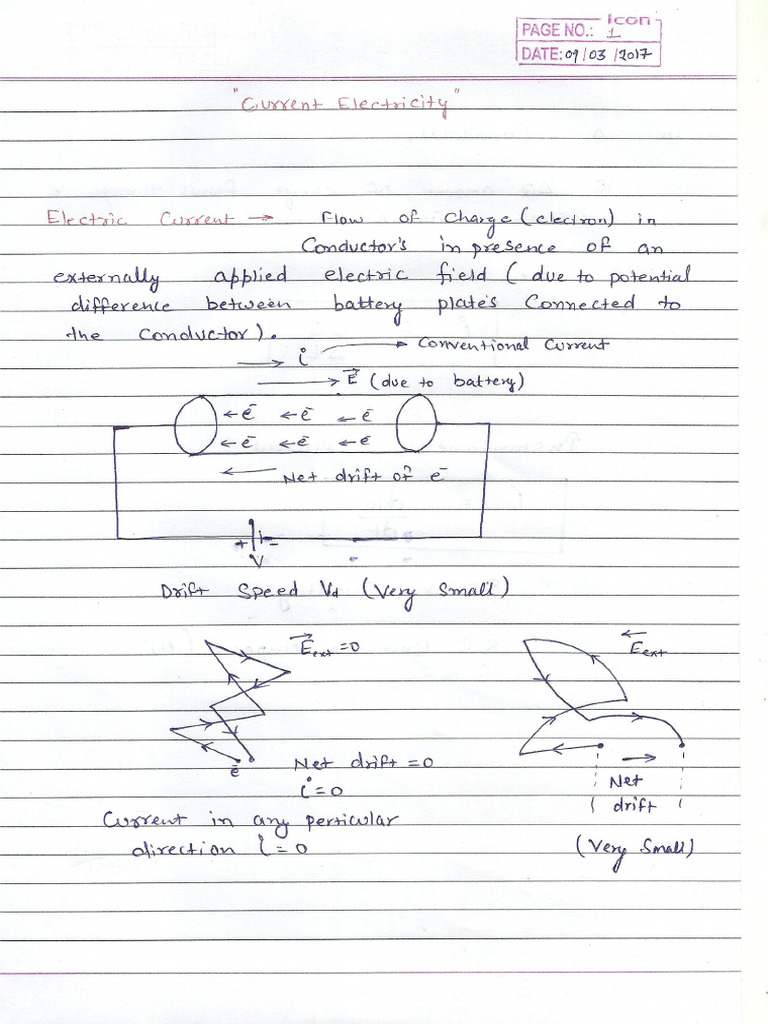 icon
PAGE NO.: 1
DATE: 09/03/2017
"Current Electricity"
Electric Current → Flow of charge (electron) in
Conductor's in presence of an
externally applied electric field (due to potential
difference between battery plates Connected to
the Conductor).
i → Conventional Current
→ E (due to battery)
←e⁻ ←e⁻ ←e⁻
←e⁻ ←e⁻ ←e
← Net drift of e⁻
+ -
V
Drift Speed Vd (Very Small)
E⃗ext = 0
E⃗ext
e⁻
Net drift = 0
i = 0
Net
drift
Current in any perticular
direction i = 0
(Very Small)